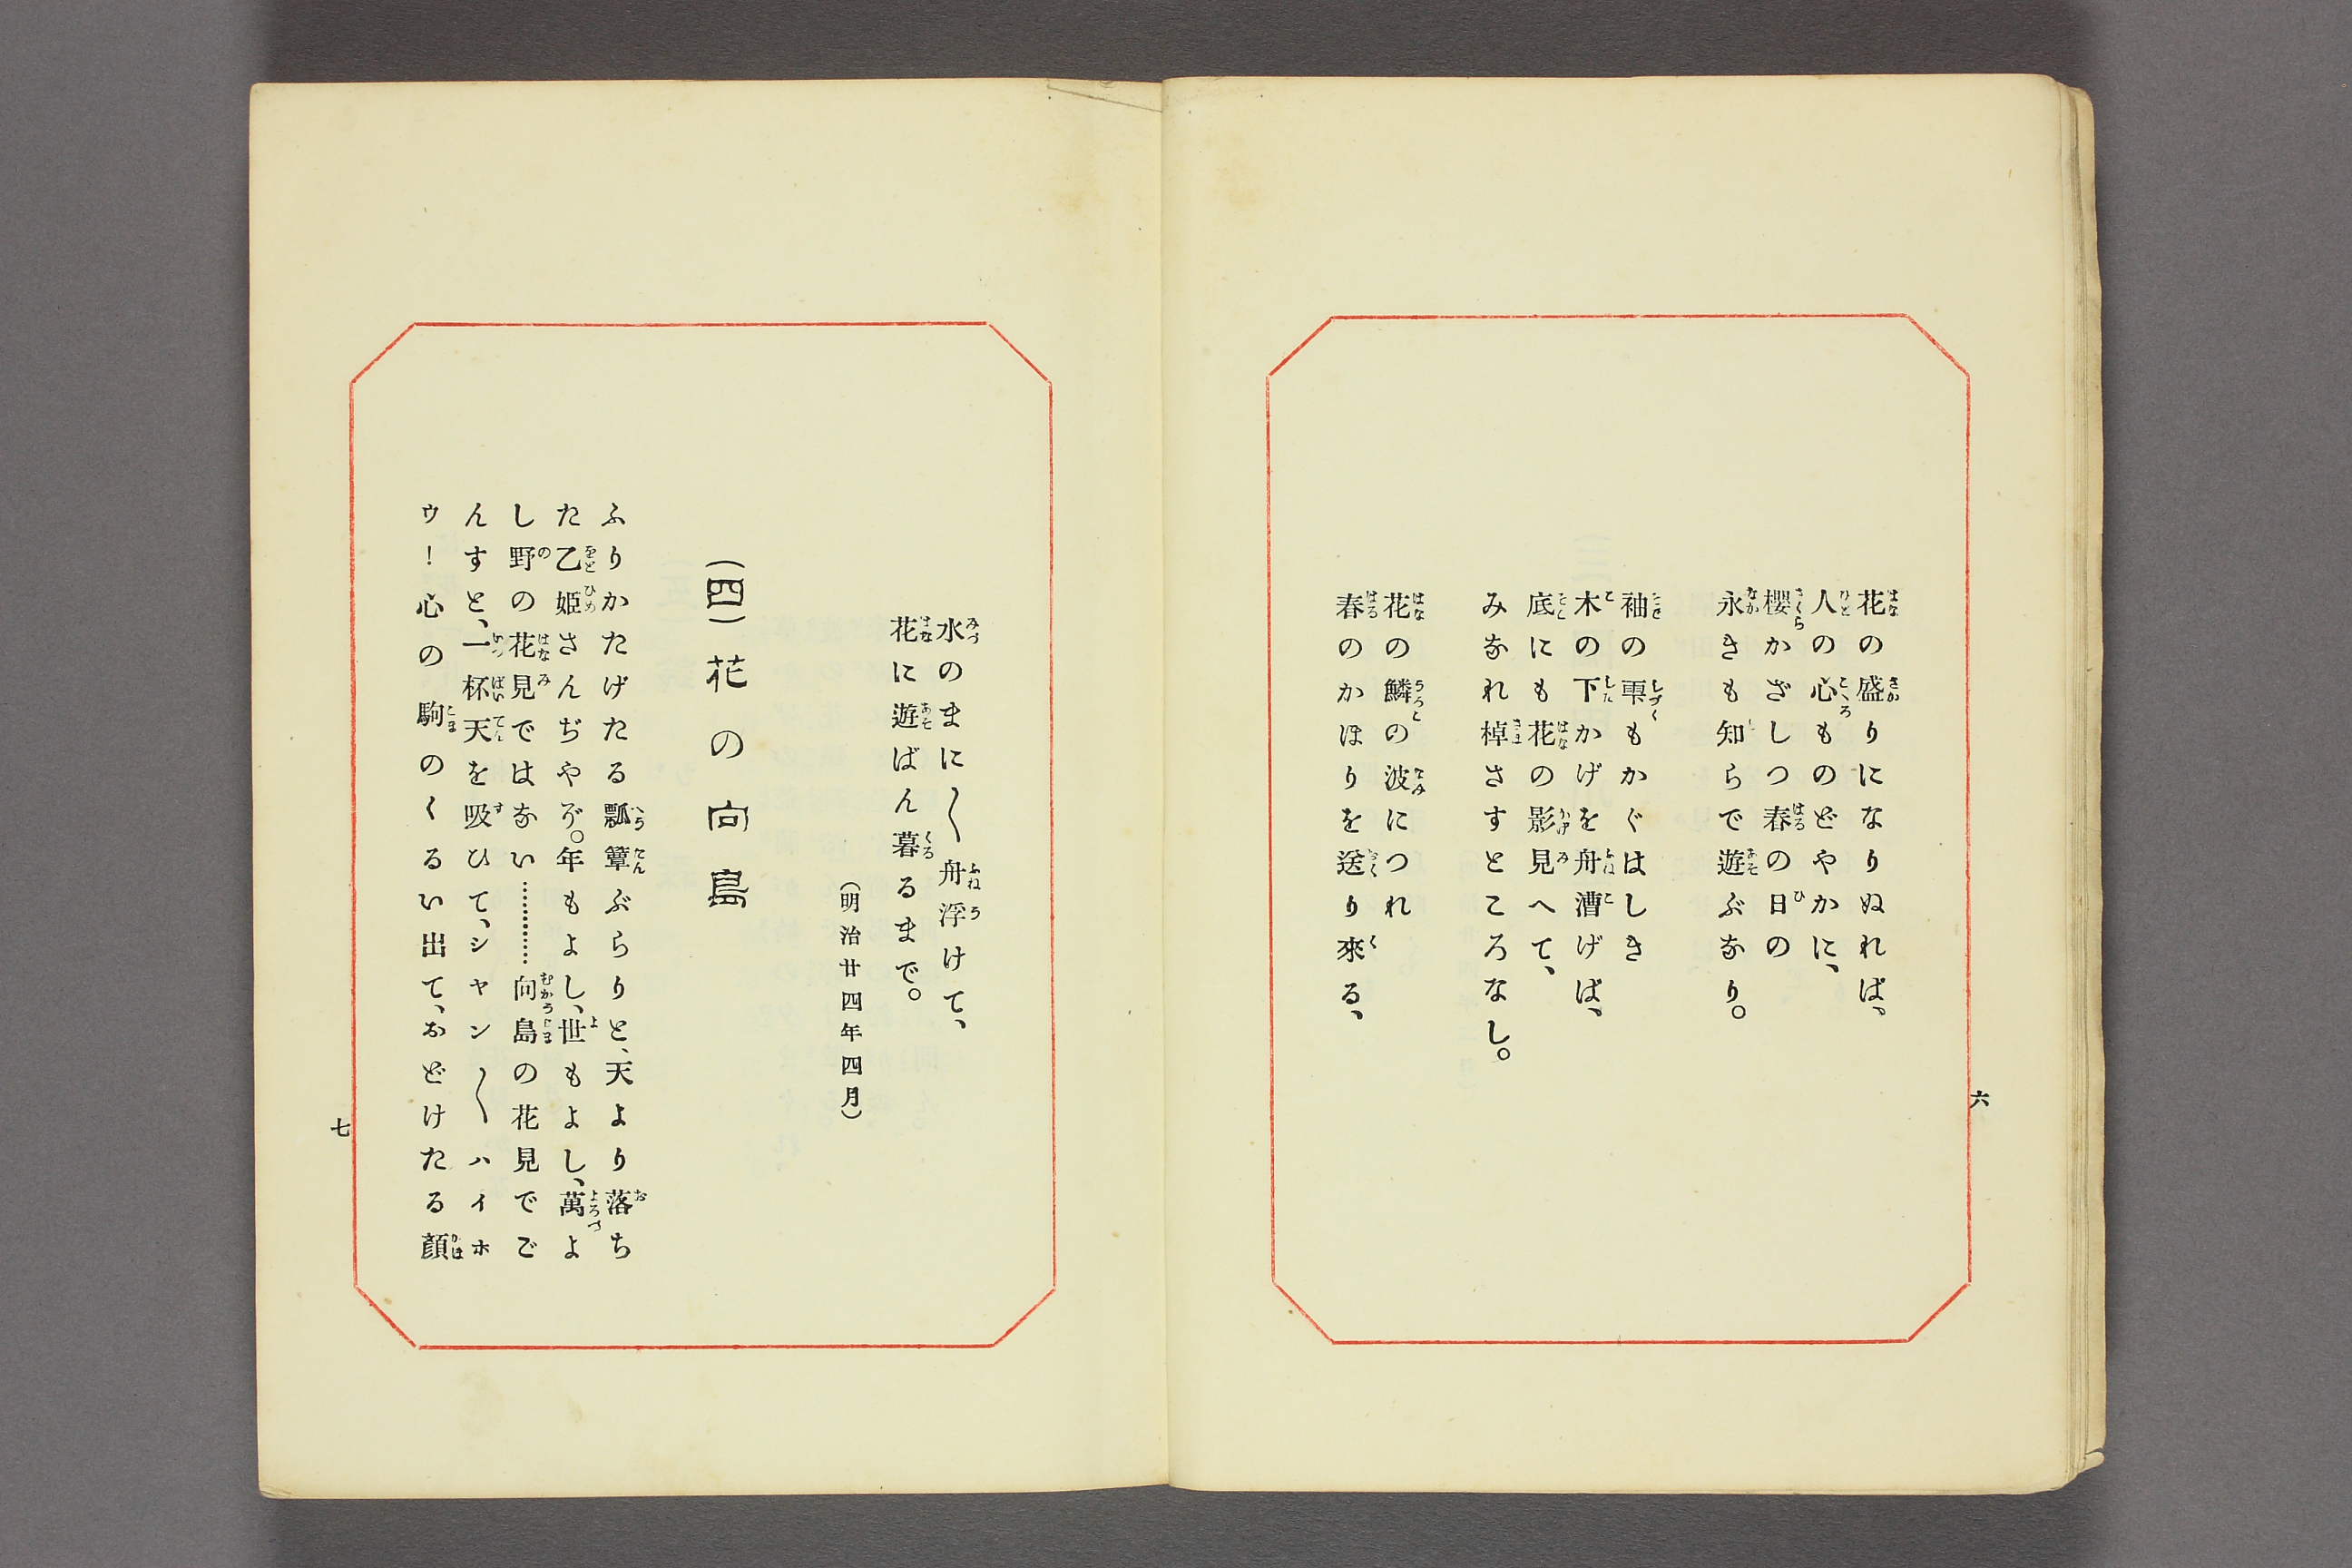 花の盛りになりぬれば、
人の心ものどやかに、
櫻かざしつ春の日の
永きも知らで遊ぶなり。
袖の雫もかぐはしき
木の下かげを舟漕げば、
底にも花の影見へて、
みなれ棹さすところなし。
花の鱗の波につれ
春のかほりを送り來る、
六
水のまに〱舟浮けて、
花に遊ばん暮るまで。
(明治廿四年四月)
(四)花の向島
ふりかたげたる瓢簞ぶらりと、天より落ち
た乙姫さんぢやぞ。年もよし、世もよし、萬よ
し野の花見ではない………向島の花見でご
んすと、一杯天を吸ひて、シヤン〱ハイホ
ウ!心の駒のくるい出て、おどけたる顔
七